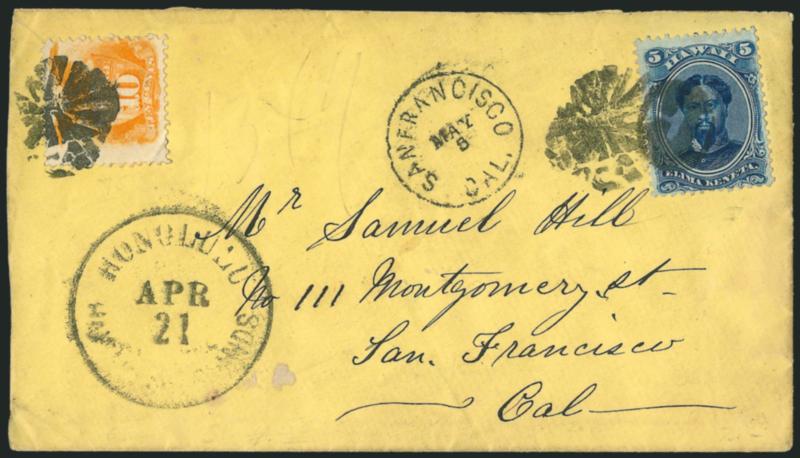 10
TEN CENTS
SAN FRANCISCO
MAY
8
CAL.
5 HAWAII 5
ELIMA KENETA.
HONOLULU
APR
21
Mr Samuel Hill
No 111 Montgomery st
San. Francisco
Cal